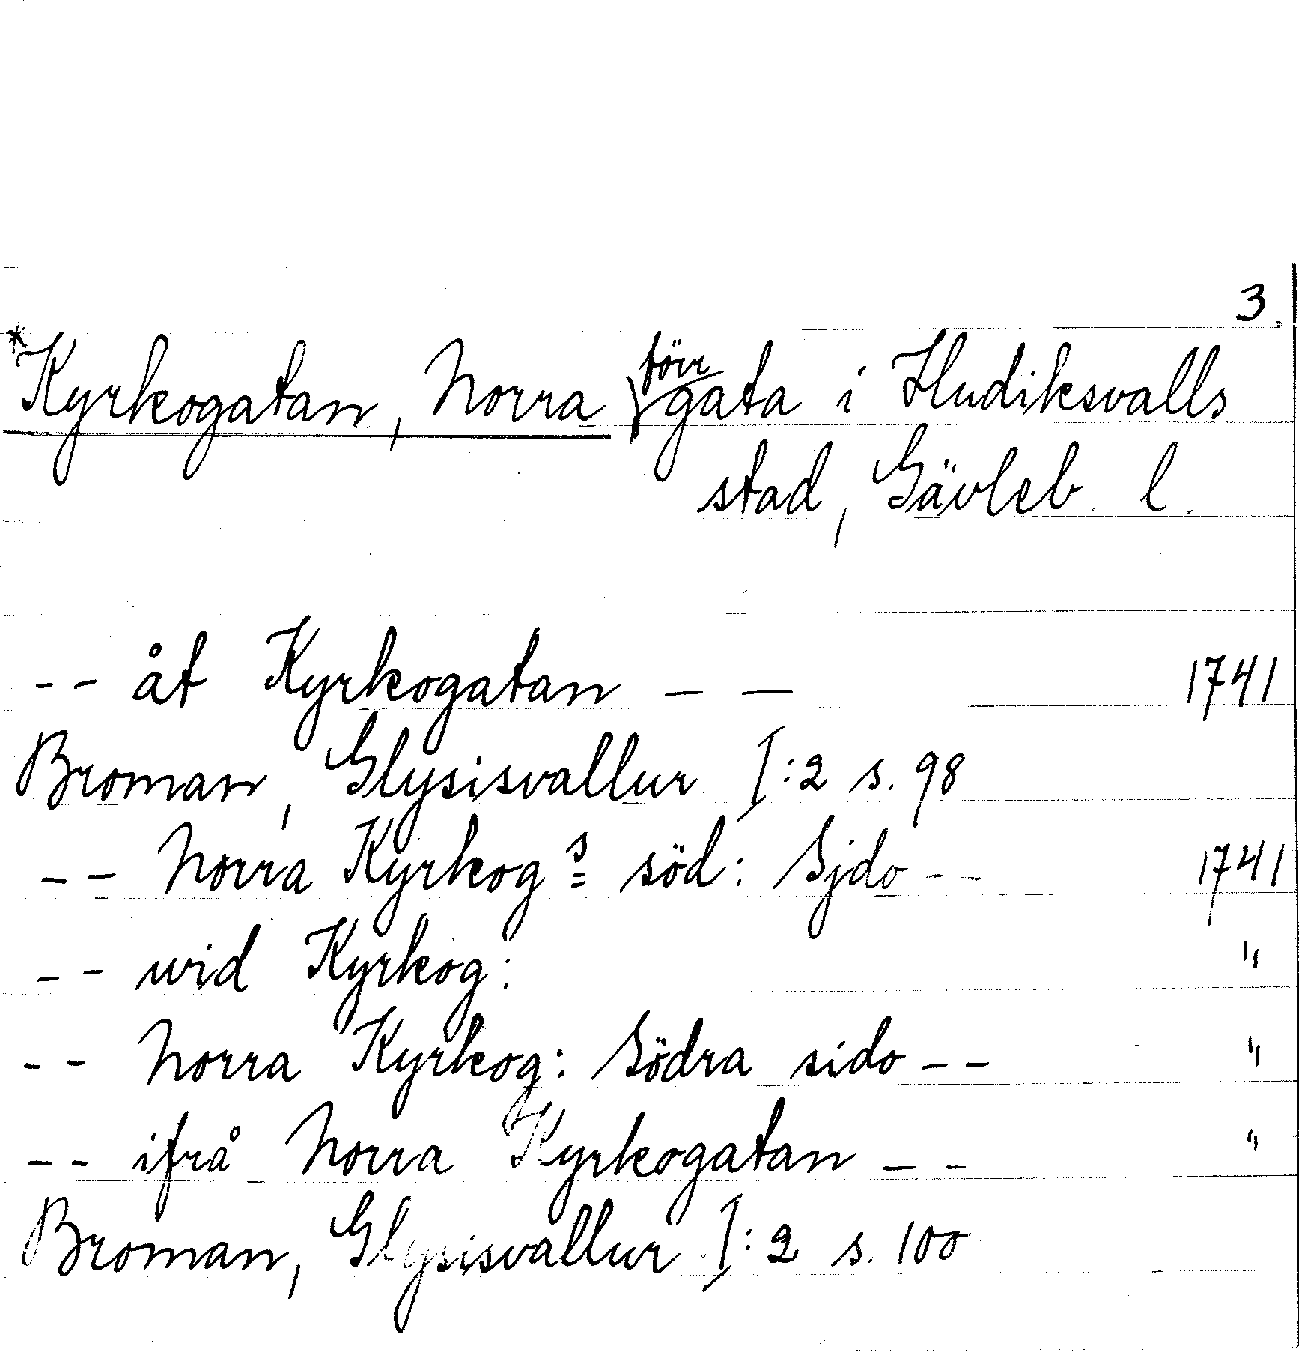 3.
*Kyrkogatan, Norra förr gata i Hudiksvalls
stad, Gävleb. l.
-- åt Kyrkogatan -- 1741
Broman, Glysisvallur I:2 s. 98
-- Norra Kyrkog:s söd: Sjdo -- 1741
-- wid Kyrkog: "
-- Norra Kyrkog: Södra sido -- "
-- ifrå Norra Kyrkogatan -- "
Broman, Glysisvallur I:2 s. 100